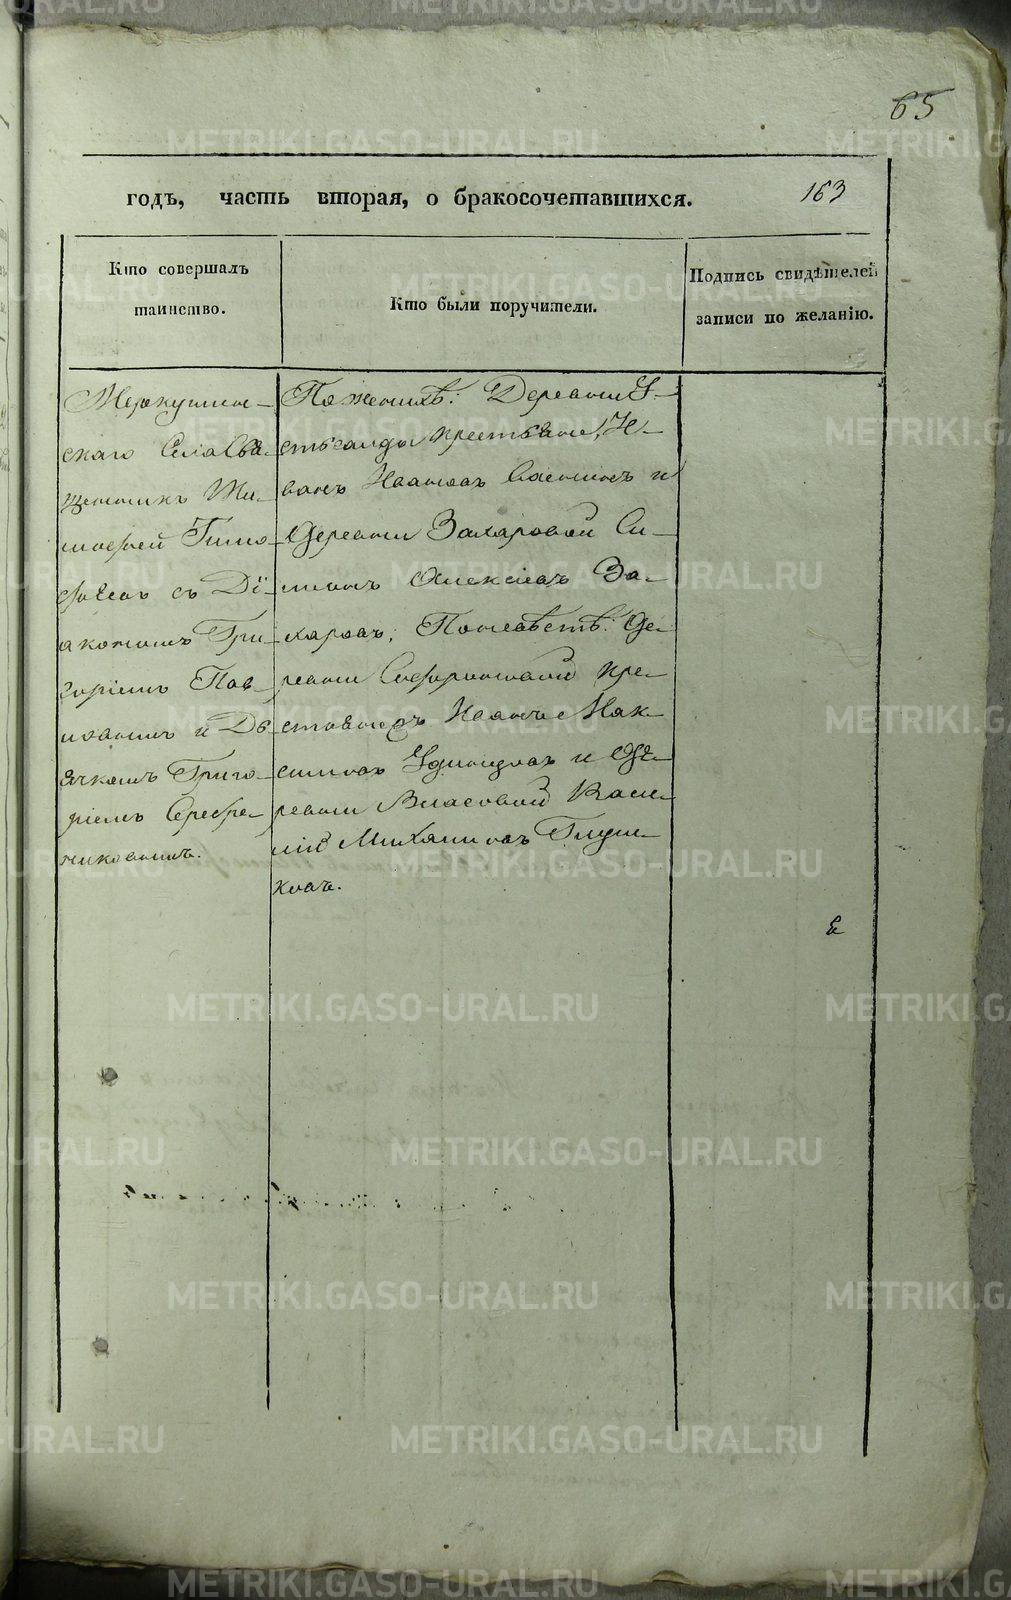 65
годъ, часть вторая, о бракосочетавшихся.
163
Кто совершалъ
таинство.
Кто были поручители.
Подпись свидѣтелей
записи по желанію.
Меркушин-
скаго Села Свя-
щенникъ Ти-
мофей Тимо-
феевъ съ Дї-
акономъ Гри-
горіемъ Пав-
иновымъ и Дь
ячкомъ Григо-
ріемъ Серебре-
никовымъ.
По женихѣ: Деревни У-
стьсалды крестьяне, И-
ванъ Ивановъ и
Деревни Захаровой Си-
Алексѣевъ За-
харовъ, По невѣстѣ: Де-
ревни кре-
стьянинъ Иванъ Мак-
симовъ и Де-
ревни Власовой Васи-
лій Михайловъ Глуш-
ковъ.
METRIKI.GASO-URAL.RU